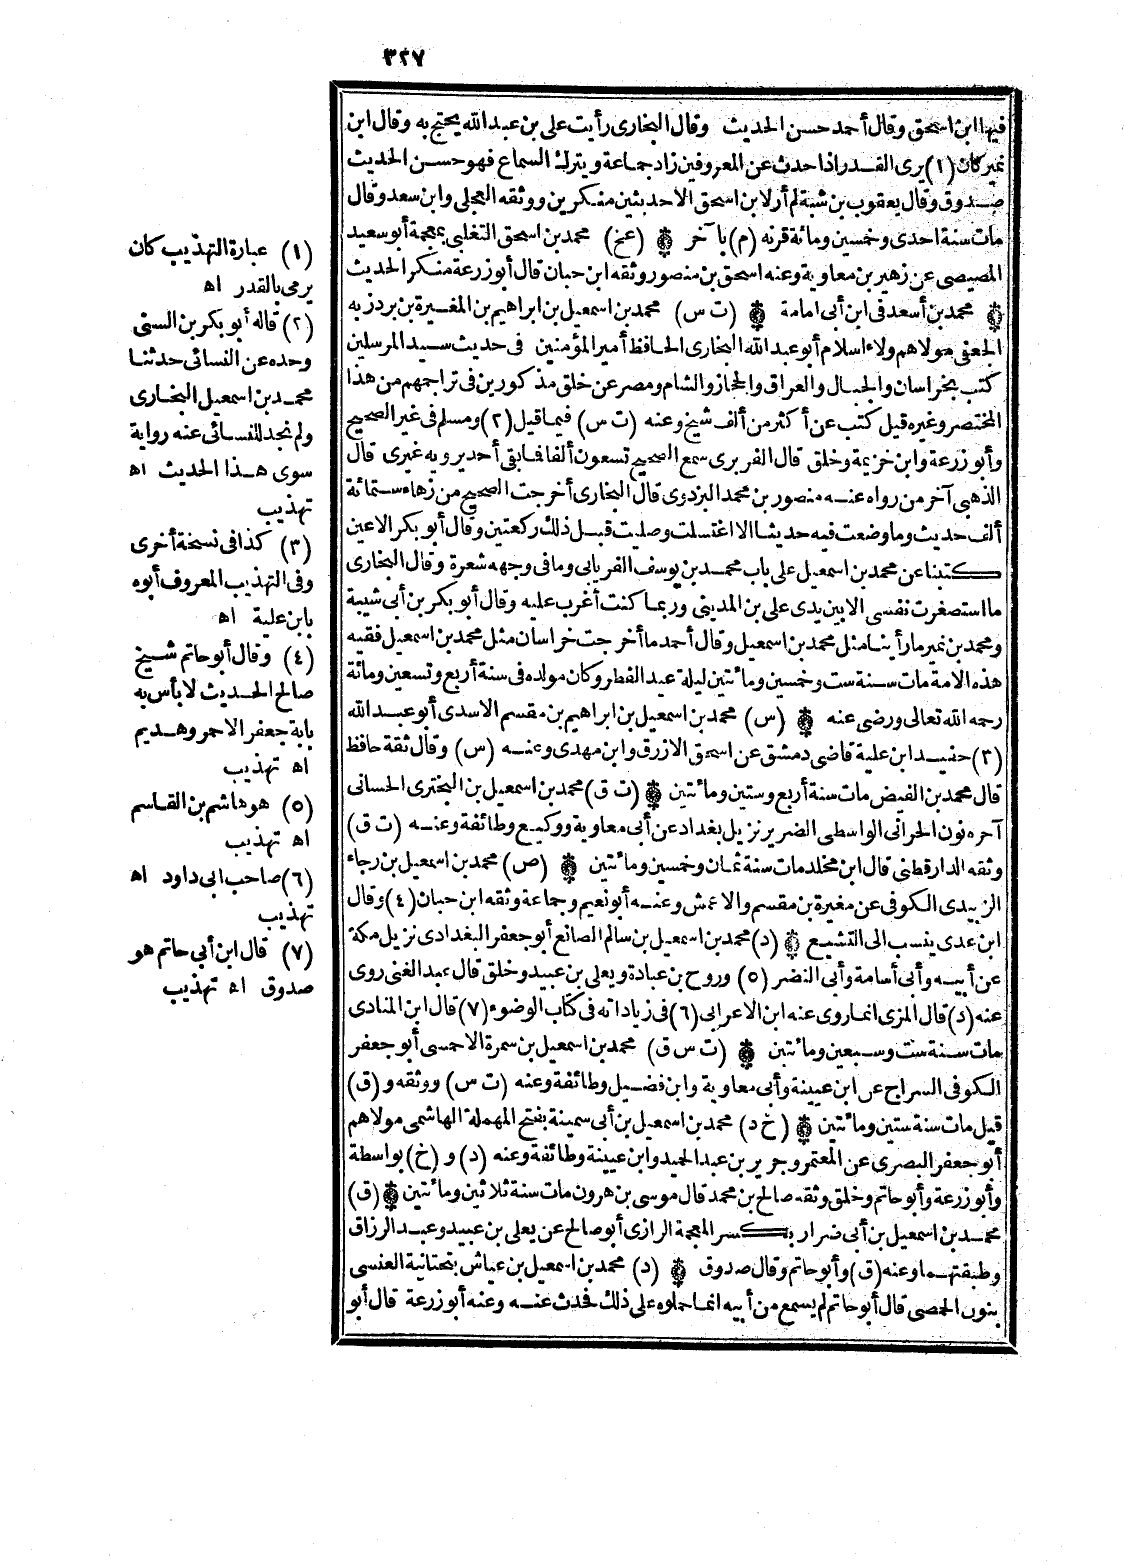 ٣٢٧
فيها ابن اسحق وقال أحمد حسن الحديث وقال البخارى رأيت على بن عبد الله يحتج به وقال ابن
نمير كان (١) يرى القدر اذا حدث عن المعروفين زاد جماعة ويترك السماع فهو حسن الحديث
صدوق وقال يعقوب بن شبة لم أر لابن اسحق الاحديثين منكرين ووثقه العجلى وابن سعد وقال
مات سنة احدى وخمسين ومائة قرنه (م) بآخر ۞ (عخ) محمد بن اسحق التغلبى بمعجمة أبو سعيد
المصيصى عن زهير بن معاوية وعنه اسحق بن منصور وثقه ابن حبان قال أبو زرعة منكر الحديث
۞ محمد بن أسعد فى ابن أبى امامة ۞ (ت س) محمد بن اسمعيل بن ابراهيم بن المغيرة بن بردزبه
الجعفى مولاهم ولاء اسلام أبو عبد الله البخارى الحافظ أمير المؤمنين فى حديث سيد المرسلين
كتب بخراسان والجبال والعراق والحجاز والشام ومصر عن خلق مذكورين فى تراجمهم من هذا
المختصر وغيره قيل كتب عن أكثر من ألف شيخ وعنه (ت س) فيما قيل (٢) ومسلم فى غير الصحيح
وأبو زرعة وابن خزيمة وخلق قال الفربرى سمع الصحيح تسعون ألفا فما بقى أحد يرويه غيرى قال
الذهبى آخر من رواه عنه منصور بن محمد البزدوى قال البخارى أخرجت الصحيح من زهاء ستمائة
ألف حديث وما وضعت فيه حديثا الا اغتسلت وصليت قبل ذلك ركعتين وقال أبو بكر الاعين
كتبنا عن محمد بن اسمعيل على باب محمد بن يوسف الفريابى وما فى وجهه شعرة وقال البخارى
ما استصغرت نفسى الا بين يدى على بن المدينى وربما كنت أغرب عليه وقال أبو بكر بن أبى شيبة
ومحمد بن نمير ما رأينا مثل محمد بن اسمعيل وقال أحمد ما أخرجت خراسان مثل محمد بن اسمعيل فقيه
هذه الامة مات سنة ست وخمسين ومائتين ليلة عيد الفطر وكان مولده فى سنة أربع وتسعين ومائة
رحمه الله تعالى ورضى عنه ۞ (س) محمد بن اسمعيل بن ابراهيم بن مقسم الاسدى أبو عبد الله
(٣) حفيد ابن علية قاضى دمشق عن اسحق الازرق وابن مهدى وعنه (س) وقال ثقة حافظ
قال محمد بن الفيض مات سنة أربع وستين ومائتين ۞ (ت ق) محمد بن اسمعيل بن البخترى الحسانى
آخره نون الحرانى الواسطى الضرير نزيل بغداد عن أبى معاوية ووكيع وطائفة وعنه (ت ق)
وثقه الدارقطنى قال ابن مخلد مات سنة ثمان وخمسين ومائتين ۞ (ص) محمد بن اسمعيل بن رجاء
الزبيدى الكوفى عن مغيرة بن مقسم والاعمش وعنه أبو نعيم وجماعة وثقه ابن حبان (٤) وقال
ابن عدى ينسب الى التشيع ۞ (د) محمد بن اسمعيل بن سالم الصائغ أبو جعفر البغدادى نزيل مكة
عن أبيه وأبى أسامة وأبى النضر (٥) وروح بن عبادة ويعلى بن عبيد وخلق قال عبد الغنى روى
عنه (د) قال المزى انما روى عنه ابن الاعرابى (٦) فى زياداته فى كتاب الوضوء (٧) قال ابن المنادى
مات سنة ست وسبعين ومائتين ۞ (ت س ق) محمد بن اسمعيل بن سمرة الاحمسى أبو جعفر
الكوفى السراج عن ابن عيينة وأبى معاوية وابن فضيل وطائفة وعنه (ت س) ووثقه و (ق)
قيل مات سنة ستين ومائتين ۞ (خ د) محمد بن اسمعيل بن أبى سمينة بفتح المهملة الهاشمى مولاهم
أبو جعفر البصرى عن المعتمر وجرير بن عبد الحميد وابن عيينة وطائفة وعنه (د) و (خ) بواسطة
وأبو زرعة وأبو حاتم وخلق وثقه صالح بن محمد قال موسى بن هرون مات سنة ثلاثين ومائتين ۞ (ق)
محمد بن اسمعيل بن أبى ضرار بكسر المعجمة الرازى أبو صالح عن يعلى بن عبيد وعبد الرزاق
وطبقتهما وعنه (ق) وأبو حاتم وقال صدوق ۞ (د) محمد بن اسمعيل بن عياش بتحتانية العنسى
بنون الحمصى قال أبو حاتم لم يسمع من أبيه انما حملوه على ذلك فحدث عنه وعنه أبو زرعة قال أبو
(١) عبارة التهذيب كان
يرمى بالقدر اه
(٢) قاله أبو بكر بن السنى
وحده عن النسائى حدثنا
محمد بن اسمعيل البخارى
ولم نجد للنسائى عنه رواية
سوى هذا الحديث اه
تهذيب
(٣) كذا فى نسخة أخرى
وفى التهذيب المعروف أبوه
بابن علية اه
(٤) وقال أبو حاتم شيخ
صالح الحديث لا بأس به
بابة جعفر الاحمر وهريم
اه تهذيب
(٥) هو هاشم بن القاسم
اه تهذيب
(٦) صاحب ابى داود اه
تهذيب
(٧) قال ابن أبى حاتم هو
صدوق اه تهذيب